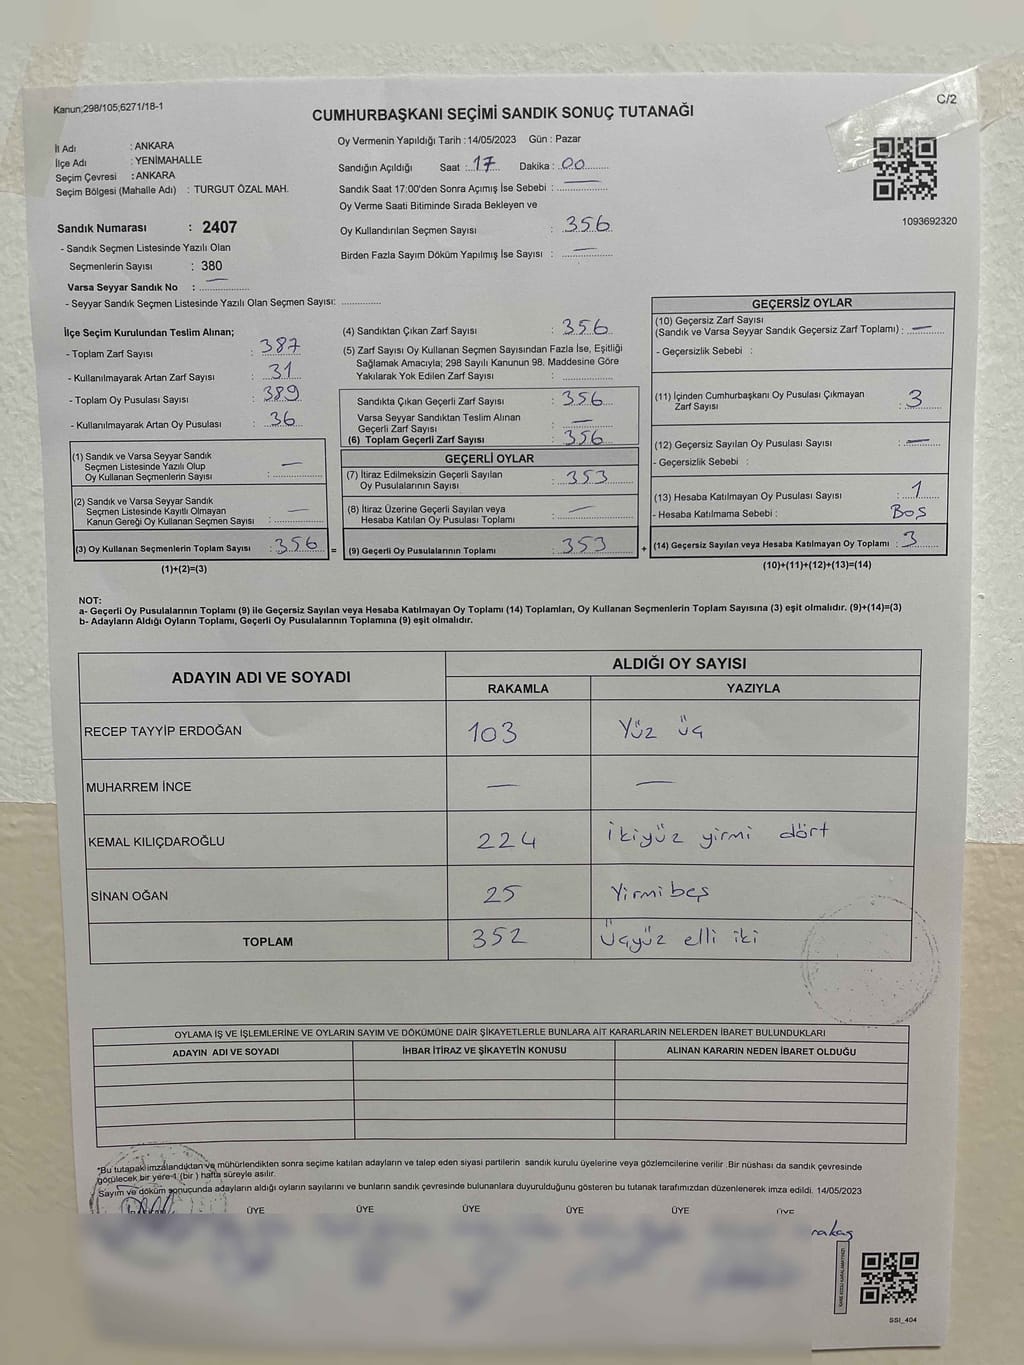 Kanun;298/105;6271/18-1
C/2
CUMHURBAŞKANI SEÇİMİ SANDIK SONUÇ TUTANAĞI
İl Adı : ANKARA
İlçe Adı : YENİMAHALLE
Seçim Çevresi : ANKARA
Seçim Bölgesi (Mahalle Adı) : TURGUT ÖZAL MAH.
Oy Vermenin Yapıldığı Tarih : 14/05/2023 Gün : Pazar
Sandığın Açıldığı Saat :..17... Dakika : ..00........
Sandık Saat 17:00'den Sonra Açımış İse Sebebi : ................
Oy Verme Saati Bitiminde Sırada Bekleyen ve
Oy Kullandırılan Seçmen Sayısı : 356
Birden Fazla Sayım Döküm Yapılmış İse Sayısı : —
1093692320
Sandık Numarası : 2407
- Sandık Seçmen Listesinde Yazılı Olan
Seçmenlerin Sayısı : 380
Varsa Seyyar Sandık No : —
- Seyyar Sandık Seçmen Listesinde Yazılı Olan Seçmen Sayısı: .............
İlçe Seçim Kurulundan Teslim Alınan;
- Toplam Zarf Sayısı : 387
- Kullanılmayarak Artan Zarf Sayısı : 31
- Toplam Oy Pusulası Sayısı : 389
- Kullanılmayarak Artan Oy Pusulası : 36
(1) Sandık ve Varsa Seyyar Sandık
Seçmen Listesinde Yazılı Olup
Oy Kullanan Seçmenlerin Sayısı : —
(2) Sandık ve Varsa Seyyar Sandık
Seçmen Listesinde Kayıtlı Olmayan
Kanun Gereği Oy Kullanan Seçmen Sayısı : —
(3) Oy Kullanan Seçmenlerin Toplam Sayısı : 356 =
(1)+(2)=(3)
(4) Sandıktan Çıkan Zarf Sayısı : 356
(5) Zarf Sayısı Oy Kullanan Seçmen Sayısından Fazla İse, Eşitliği
Sağlamak Amacıyla; 298 Sayılı Kanunun 98. Maddesine Göre
Yakılarak Yok Edilen Zarf Sayısı : ................
Sandıkta Çıkan Geçerli Zarf Sayısı : 356
Varsa Seyyar Sandıktan Teslim Alınan
Geçerli Zarf Sayısı : —
(6) Toplam Geçerli Zarf Sayısı : 356
GEÇERLİ OYLAR
(7) İtiraz Edilmeksizin Geçerli Sayılan
Oy Pusulalarının Sayısı : 353
(8) İtiraz Üzerine Geçerli Sayılan veya
Hesaba Katılan Oy Pusulası Toplamı : —
(9) Geçerli Oy Pusulalarının Toplamı : 353 +
GEÇERSİZ OYLAR
(10) Geçersiz Zarf Sayısı
(Sandık ve Varsa Seyyar Sandık Geçersiz Zarf Toplamı) : —
- Geçersizlik Sebebi :
(11) İçinden Cumhurbaşkanı Oy Pusulası Çıkmayan
Zarf Sayısı : 3
(12) Geçersiz Sayılan Oy Pusulası Sayısı : —
- Geçersizlik Sebebi :
(13) Hesaba Katılmayan Oy Pusulası Sayısı : 1
- Hesaba Katılmama Sebebi : Boş
(14) Geçersiz Sayılan veya Hesaba Katılmayan Oy Toplamı : 3
(10)+(11)+(12)+(13)=(14)
NOT:
a- Geçerli Oy Pusulalarının Toplamı (9) ile Geçersiz Sayılan veya Hesaba Katılmayan Oy Toplamı (14) Toplamları, Oy Kullanan Seçmenlerin Toplam Sayısına (3) eşit olmalıdır. (9)+(14)=(3)
b- Adayların Aldığı Oyların Toplamı, Geçerli Oy Pusulalarının Toplamına (9) eşit olmalıdır.
ADAYIN ADI VE SOYADI
ALDIĞI OY SAYISI
RAKAMLA YAZIYLA
RECEP TAYYİP ERDOĞAN 103 Yüz üç
MUHARREM İNCE — —
KEMAL KILIÇDAROĞLU 224 İkiyüz yirmi dört
SİNAN OĞAN 25 Yirmibeş
TOPLAM 352 Üçyüz elli iki
OYLAMA İŞ VE İŞLEMLERİNE VE OYLARIN SAYIM VE DÖKÜMÜNE DAİR ŞİKAYETLERLE BUNLARA AİT KARARLARIN NELERDEN İBARET BULUNDUKLARI
ADAYIN ADI VE SOYADI İHBAR İTİRAZ VE ŞİKAYETİN KONUSU ALINAN KARARIN NEDEN İBARET OLDUĞU
*Bu tutanak imzalandıktan ve mühürlendikten sonra seçime katılan adayların ve talep eden siyasi partilerin sandık kurulu üyelerine veya gözlemcilerine verilir .Bir nüshası da sandık çevresinde
görülecek bir yere 1 (bir ) hafta süreyle asılır.
Sayım ve döküm sonucunda adayların aldığı oyların sayılarını ve bunların sandık çevresinde bulunanlara duyurulduğunu gösteren bu tutanak tarafımızdan düzenlenerek imza edildi. 14/05/2023
ÜYE ÜYE ÜYE ÜYE ÜYE ÜYE
SSI_404